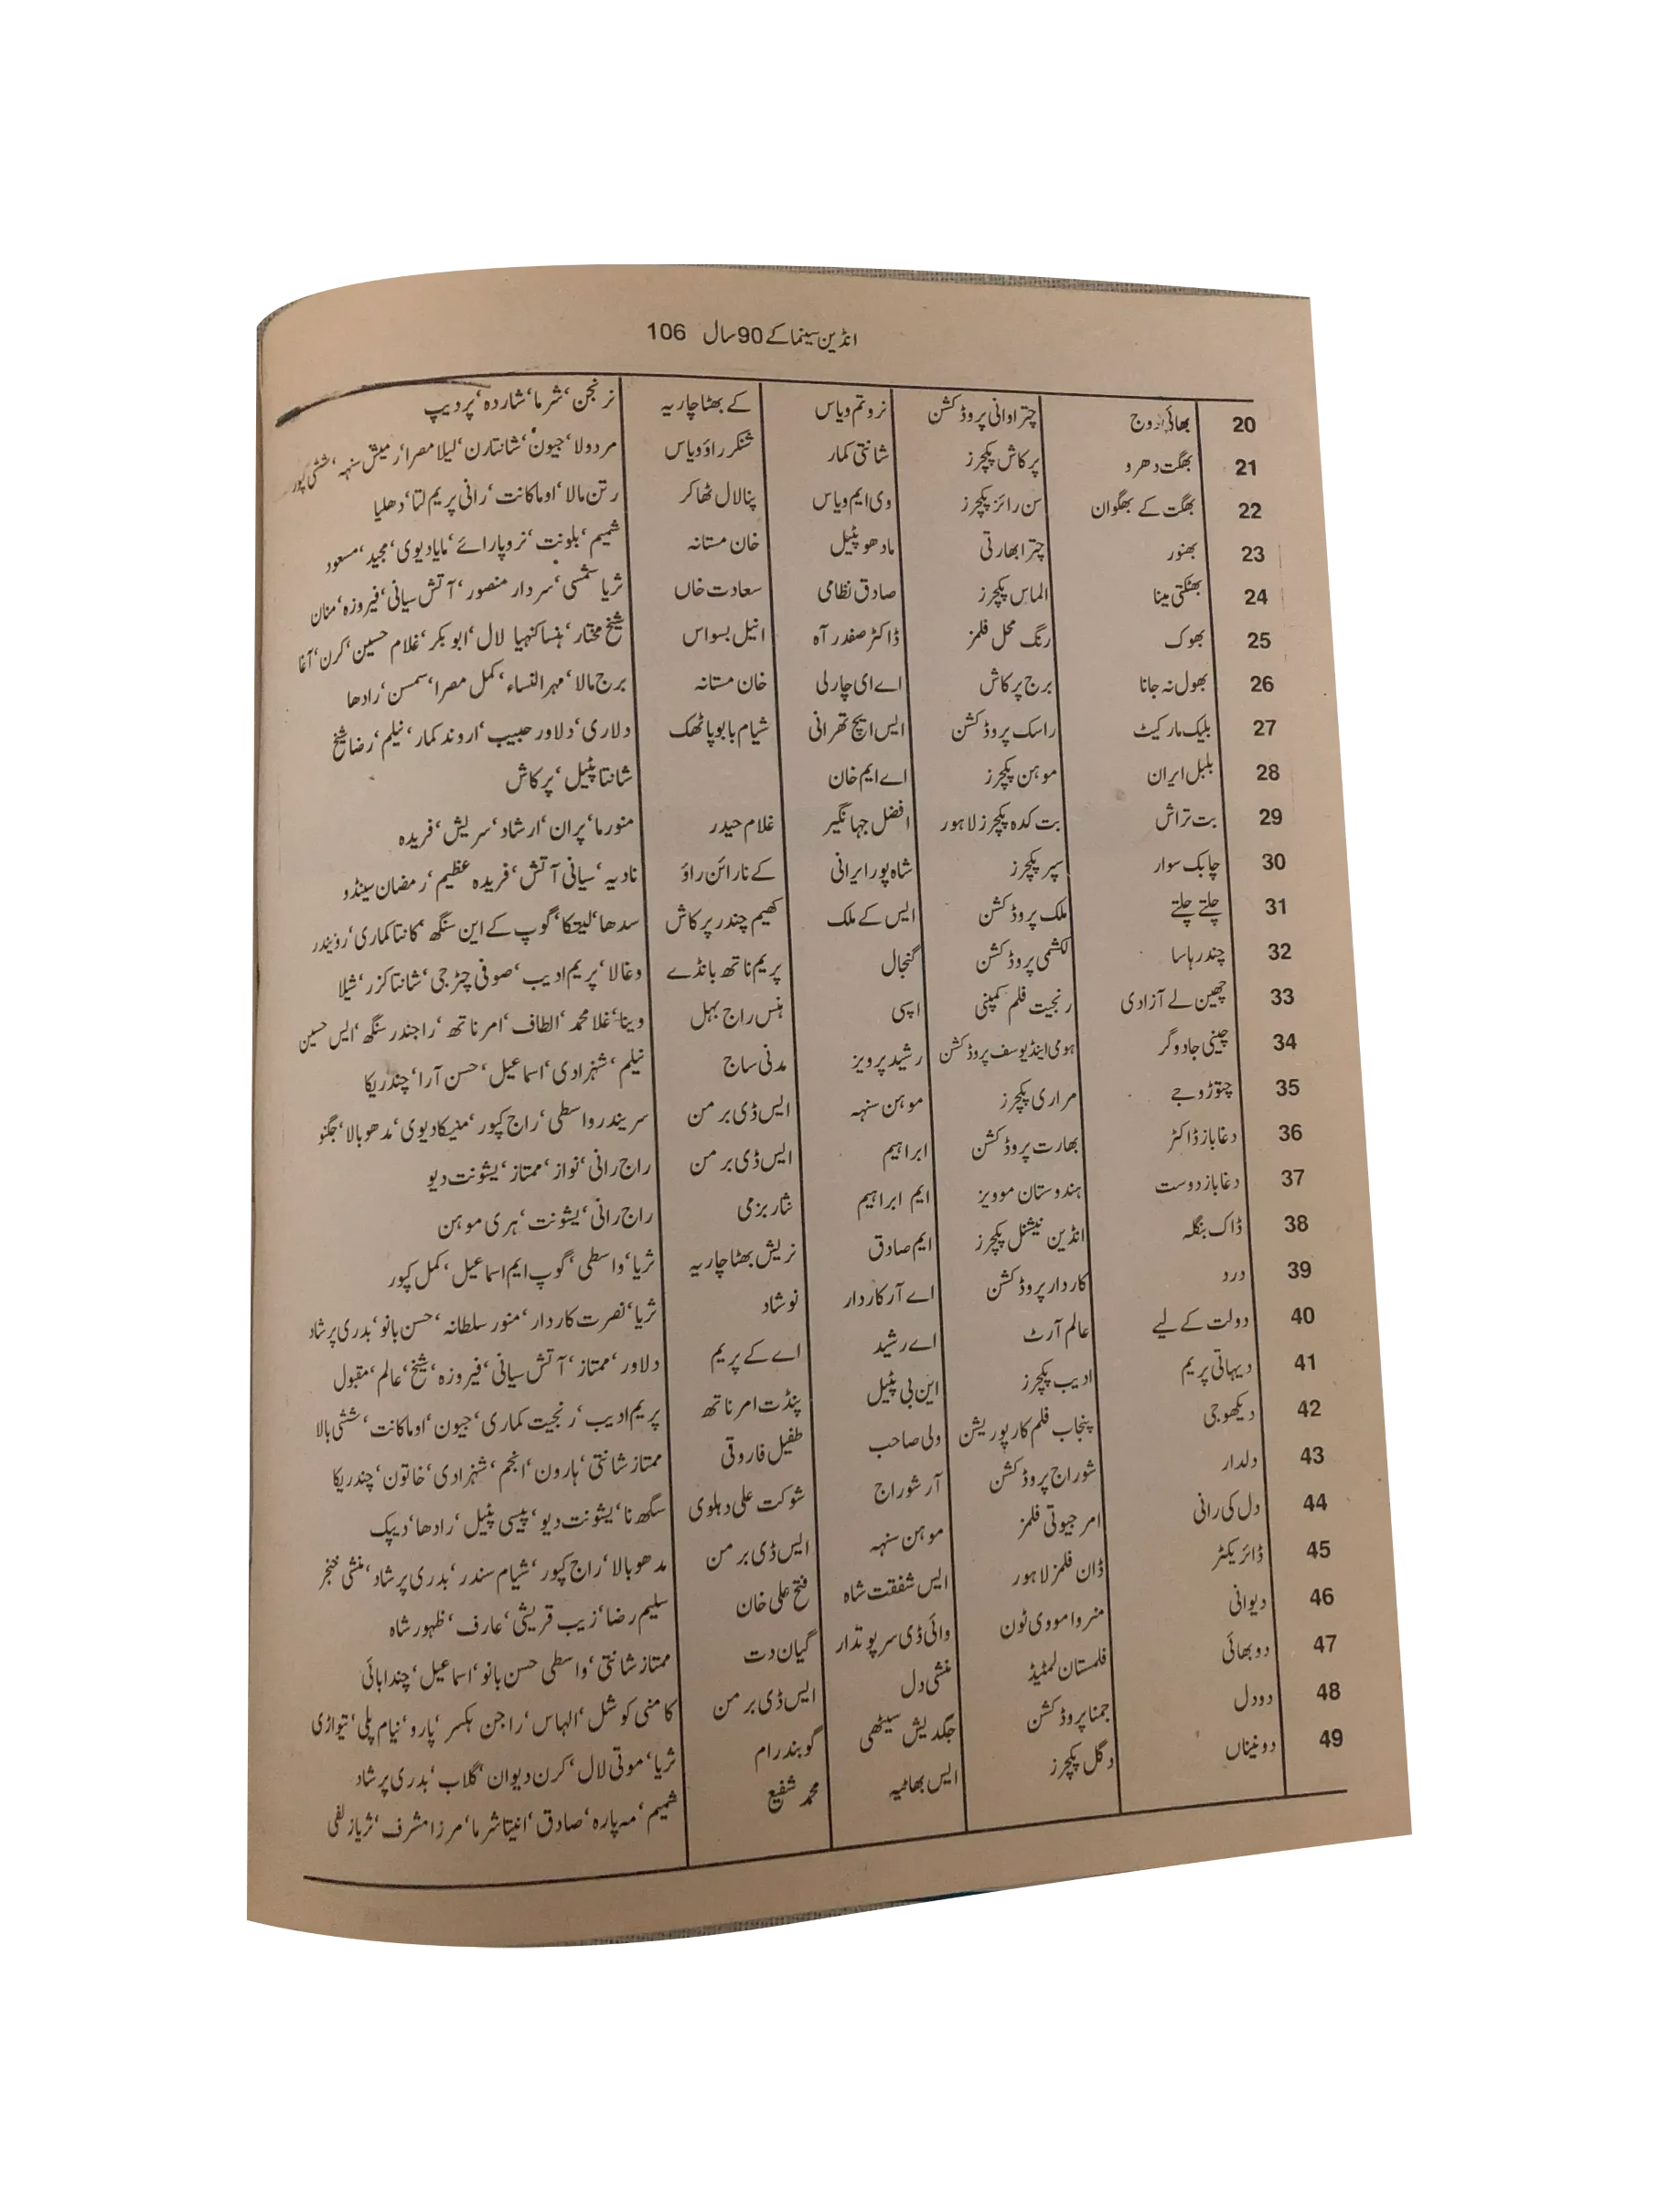 انڈین سینما کے 90 سال 106
20 بھائی دوج چتراوانی پروڈکشن نروتم ویاس کے بھٹاچاریہ نرنجن‘ شرما‘ شاردہ‘ پردیپ
21 بھگت دھرو پرکاش پکچرز شانتی کمار شنکر راؤ ویاس مردولا‘ جیون‘ شانتارن‘ لیلا مصرا‘ رمیش سنہہ‘ ششی کپور
22 بھگت کے بھگوان سن رائز پکچرز وی ایم ویاس پنالال ٹھاکر رتن مالا‘ اوماکانت‘ رانی پریم لتا‘ دھلیا
23 بھنور چترا بھارتی مادھو پٹیل خان مستانہ شمیم‘ بلونت‘ نروپارائے‘ مایا دیوی‘ مجید‘ مسعود
24 بھٹکتی مینا الماس پکچرز صادق نظامی سعادت خاں ثریا شمسی‘ سردار منصور‘ آتش سیانی‘ فیروزہ‘ منان
25 بھوک رنگ محل فلمز ڈاکٹر صفدر آہ انیل بسواس شیخ مختار‘ ہنسا کنہیا لال‘ ابوبکر‘ غلام حسین‘ کرن‘ آغا
26 بھول نہ جانا برج پرکاش اے ای چارلی خان مستانہ برج مالا‘ مہرالنساء‘ کمل مصرا‘ سمسن‘ رادھا
27 بلیک مارکیٹ راسک پروڈکشن ایس ایچ تھرانی شیام بابو پاٹھک دلاری‘ دلاور حبیب‘ اروند کمار‘ نیلم‘ رضا شیخ
28 بلبل ایران موہن پکچرز اے ایم خان شانتا پٹیل‘ پرکاش
29 بت تراش بت کدہ پکچرز لاہور افضل جہانگیر غلام حیدر منورما‘ پران‘ ارشاد‘ سریش‘ فریدہ
30 چابک سوار سپر پکچرز شاہ پور ایرانی کے نارائن راؤ نادیہ‘ سیانی آتش‘ فریدہ عظیم‘ رمضان سینڈو
31 چلتے چلتے ملک پروڈکشن ایس کے ملک کھیم چندر پرکاش سدھا‘ لیتکا‘ گوپ کے این سنگھ‘ کانتا کماری‘ رویندر
32 چندرہاسا لکشمی پروڈکشن گنجال پریم ناتھ بانڈے وغالا‘ پریم ادیب‘ صوفی چٹرجی‘ شانتا کزر‘ شیلا
33 چھین لے آزادی رنجیت فلم کمپنی اپسی ہنس راج بہل وینا‘ غلا محمد‘ الطاف‘ امرناتھ‘ راجندر سنگھ‘ ایس حسین
34 چینی جادوگر ہومی اینڈ یوسف پروڈکشن رشید پرویز مدنی ساج نیلم‘ شہزادی‘ اسماعیل‘ حسن آرا‘ چندریکا
35 چتوڑ وجے مراری پکچرز موہن سنہہ ایس ڈی برمن سریندر واسطی‘ راج کپور‘ منیکا دیوی‘ مدھوبالا‘ جگنو
36 دغاباز ڈاکٹر بھارت پروڈکشن ابراہیم ایس ڈی برمن راج رانی‘ نواز‘ ممتاز‘ یشونت دیو
37 دغاباز دوست ہندوستان موویز ایم ابراہیم نثار بزمی راج رانی‘ یشونت‘ ہری موہن
38 ڈاک بنگلہ انڈین نیشنل پکچرز ایم صادق نریش بھٹاچاریہ ثریا‘ واسطی‘ گوپ ایم اسماعیل‘ کمل کپور
39 درد کاردار پروڈکشن اے آر کاردار نوشاد ثریا‘ نصرت کاردار‘ منور سلطانہ‘ حسن بانو‘ بدری پرشاد
40 دولت کے لیے عالم آرٹ اے رشید اے کے پریم دلاور‘ ممتاز‘ آتش سیانی‘ فیروزہ‘ شیخ‘ عالم‘ مقبول
41 دیہاتی پریم ادیب پکچرز این بی پٹیل پنڈت امرناتھ پریم ادیب‘ رنجیت کماری‘ جیون‘ اوماکانت‘ ششی بالا
42 دیکھو جی پنجاب فلم کارپوریشن ولی صاحب طفیل فاروقی ممتاز شانتی‘ ہارون‘ انجم‘ شہزادی‘ خاتون‘ چندریکا
43 دلدار شوراج پروڈکشن آر شوراج شوکت علی دہلوی سگھ نا‘ یشونت دیو‘ پیسی پٹیل‘ رادھا‘ دیپک
44 دل کی رانی امر جیوتی فلمز موہن سنہہ ایس ڈی برمن مدھوبالا‘ راج کپور‘ شیام سندر‘ بدری پرشاد‘ منشی خنجر
45 ڈائریکٹر ڈان فلمز لاہور ایس شفقت شاہ فتح علی خان سلیم رضا‘ زیب قریشی‘ عارف‘ ظہور شاہ
46 دیوانی منروا مووی ٹون وائی ڈی سرپوتدار گیان دت ممتاز شانتی‘ واسطی حسن بانو‘ اسماعیل‘ چندابائی
47 دو بھائی فلمستان لمٹیڈ منشی دل ایس ڈی برمن کامنی کوشل‘ الہاس‘ راجن ہکسر‘ پارو‘ نیام پلی‘ تیواڑی
48 دو دل جمنا پروڈکشن جگدیش سیٹھی گوبند رام ثریا‘ موتی لال‘ کرن دیوان‘ گلاب‘ بدری پرشاد
49 دو نیناں دگل پکچرز ایس بھاٹیہ محمد شفیع شمیم‘ مہ پارہ‘ صادق‘ انیتا شرما‘ مرزا مشرف‘ ثریا زلفی